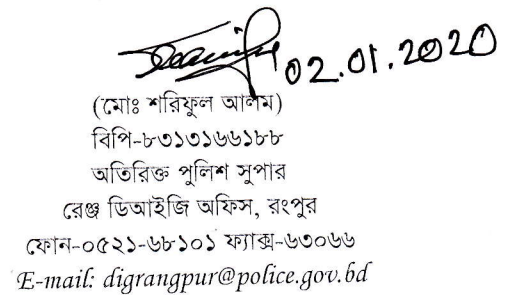 02.01.2020
(মোঃ শরিফুল আলম)
বিপি-৮৩১৩১৬৬১৮৮
অতিরিক্ত পুলিশ সুপার
রেঞ্জ ডিআইজি অফিস, রংপুর
ফোন-০৫২১-৬৮১০১ ফ্যাক্স-৬৩০৬৬
E-mail: digrangpur@police.gov.bd